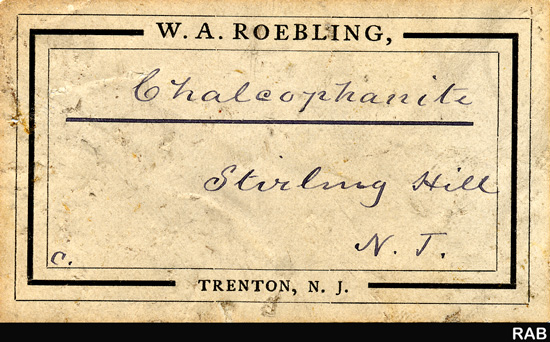 W. A. ROEBLING,
Chalcophanite
Stirling Hill
N. J.
c.
TRENTON, N. J.
RAB